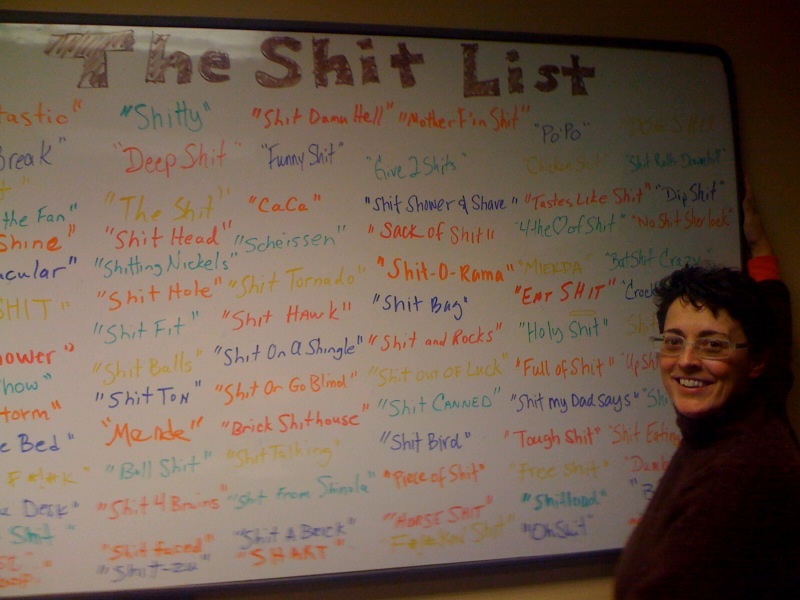 The Shit List
tastic"
Break"
the Fan"
Shine"
acular"
SHIT"
hower"
how"
torm"
e Bed"
F*!*K"
Desk"
Shit"
"Shitty"
"Deep Shit"
"The Shit"
"Shit Head"
"Shitting Nickels"
"Shit Hole"
"Shit Fit"
"Shit Balls"
"Shit Ton"
"Merde"
"Bull Shit"
"Shit 4 Brains"
"Shit faced"
"Shit-zu"
"Shit Damn Hell"
"Funny Shit"
"CaCa"
"Scheissen"
"Shit Tornado"
"Shit Hawk"
"Shit On A Shingle"
"Shit Or Go Blind"
"Brick Shithouse"
"Shit Talking"
"Shit From Shinola"
"Shit A Brick"
"SHART"
"Mother F'in Shit"
"Give 2 Shits"
"Shit Shower & Shave"
"Sack of Shit"
"Shit-O-Rama"
"Shit Bag"
"Shit and Rocks"
"Shit out of Luck"
"Shit Canned"
"Shit Bird"
"Piece of Shit"
"Horse Shit"
"PoPo"
"Chicken Shit"
"Tastes Like Shit"
"4 the ♡ of Shit"
"MIERDA"
"Eat SHIT"
"Holy Shit"
"Full of Shit"
"Shit my Dad says"
"Tough Shit"
"Free Shit"
"Shitload"
"Oh Shit"
"Shit Rolls Downhill"
"Dip Shit"
"No Shit Sherlock"
"Bat Shit Crazy"
"Crock
"Up Sh
"Shi
"Shit Eating
"Dumb